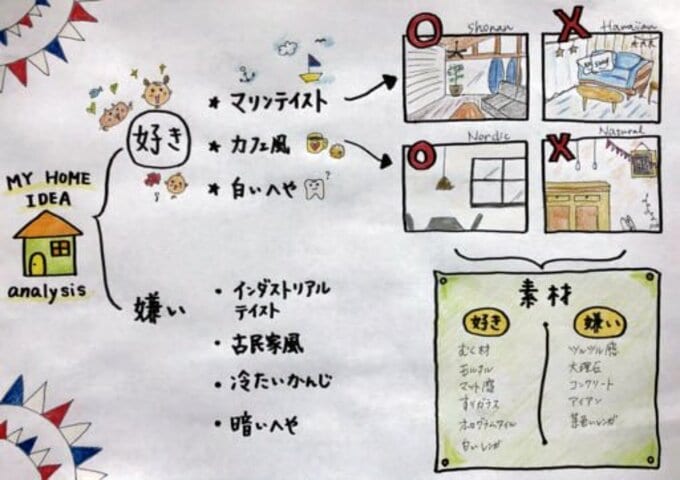 MY HOME
IDEA
analysis
好き
★ マリンテイスト
★ カフェ風
★ 白いへや
?
嫌い
・インダストリアル
テイスト
・古民家風
・冷たいかんじ
・暗いへや
Shonan
Hawaiian
Nordic
Natural
素材
好き
むく材
モルタル
マット感
すりガラス
白いレンガ
嫌い
ツルツル感
大理石
コンクリート
アイアン
茶色いレンガ